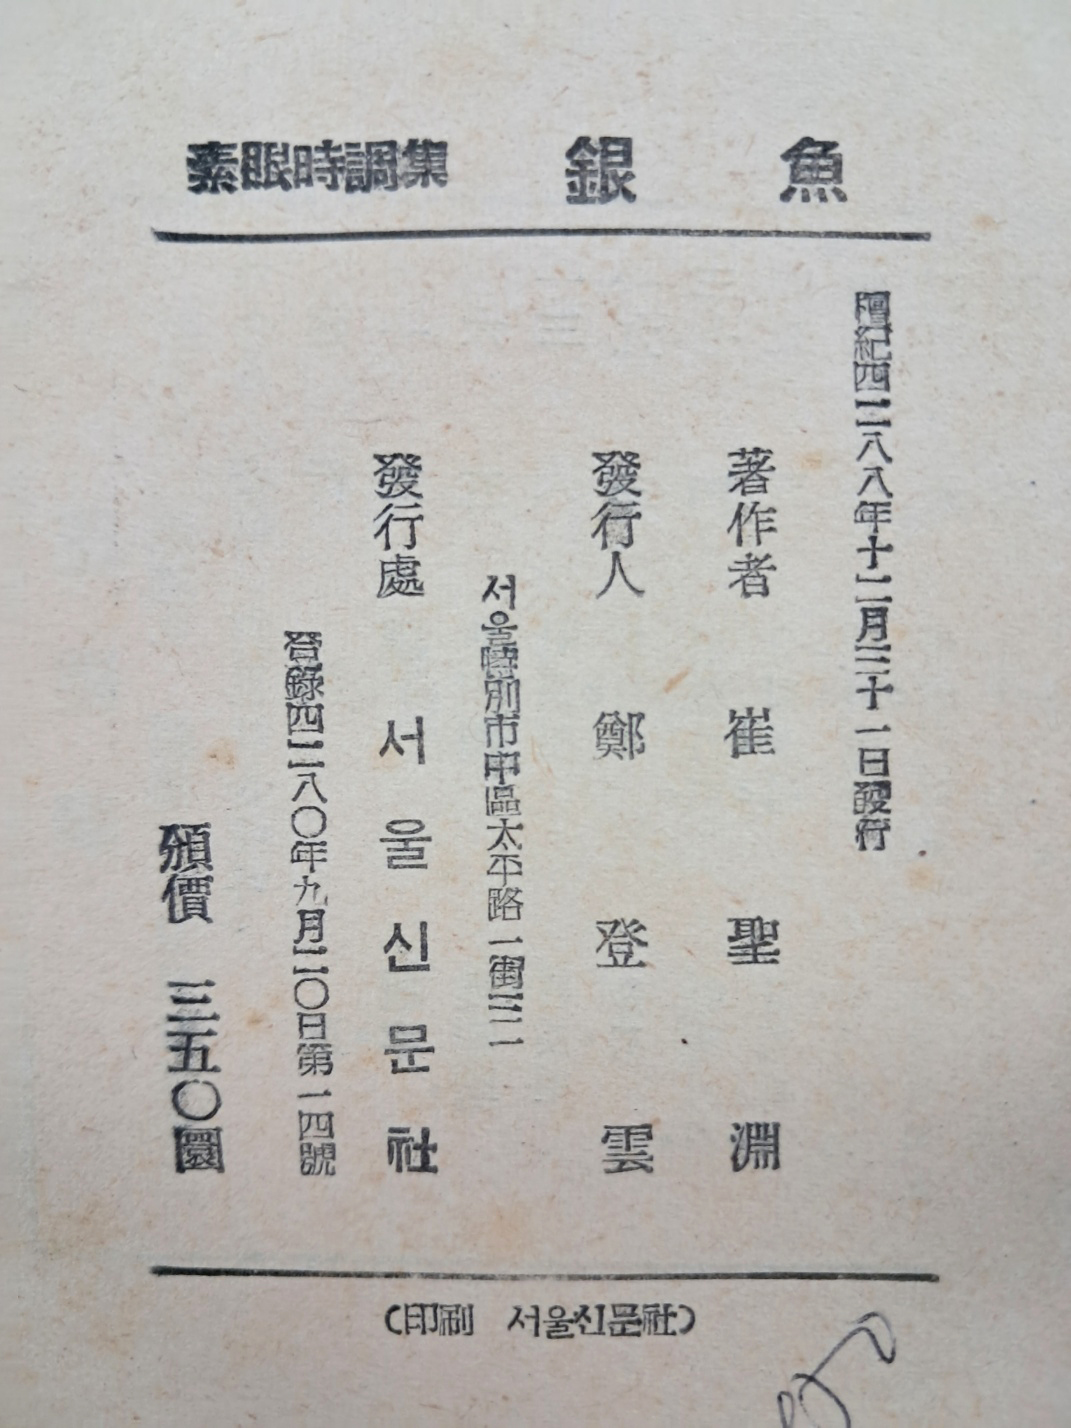 素眼時調集 銀魚
檀紀四二八八年十二月三十一日發行
著作者 崔聖淵
發行人 鄭登雲
서울特別市中區太平路一街三一
發行處 서울신문社
登錄四二八〇年九月二〇日第一四號
頒價 三五〇圜
(印刷 서울신문社)